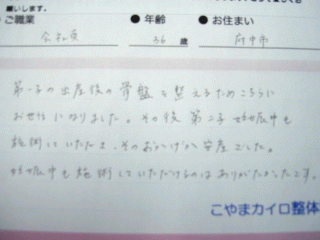 願いします。
● ご職業 ● 年齢 ● お住まい
会社員 36 歳 府中市
第一子の出産後の骨盤を整えるためこちらに
お世話になりました。その後 第二子 妊娠中も
施術していただき、そのおかげか安産でした。
妊娠中も施術していただけるのはありがたかったです。
おやまカイロ整体